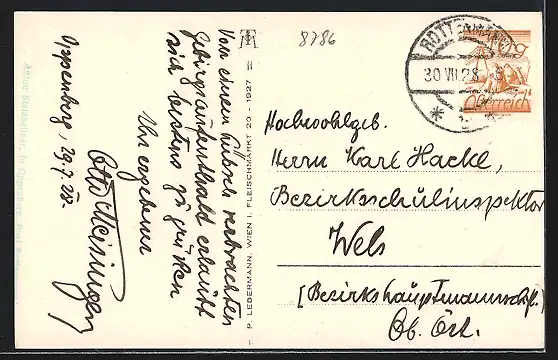 8786
ROTTENMANN
30 VII 28
Österreich
Oppenberg, 29.7.28.
Von einem hübsch verbrachten
Gebirgsaufenthalt erlaubt
sich bestens zu grüßen
Ihr ergebener
Otto
P. LEDERMANN, WIEN I. FLEISCHMARKT 20 - 1927
Hochwohlgeb.
Herrn Karl Hackl,
Bezirksschulinspektor
Wels
[Bezirkshauptmannschaft.
Ob. Öst.